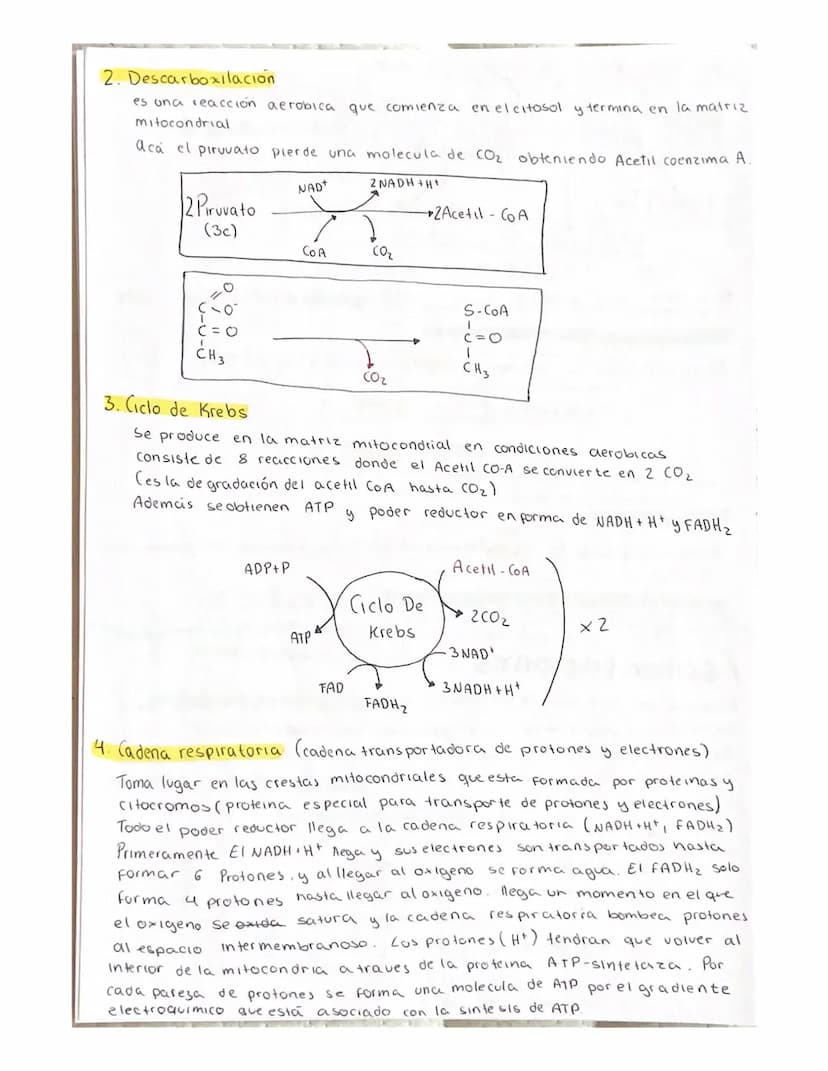 2. Descarboxilación
es una reacción aerobica que comienza en el citosol y termina en la matriz
mitocondrial
Acá el piruvato pierde una molecula de CO₂ obteniendo Acetil coenzima A.
NAD⁺ 2NADH+H⁺
2Piruvato 2Acetil - CoA
(3c)
CoA CO₂
O
C - O⁻
C = O
CH₃
CO₂
S-CoA
C=O
CH₃
3. Ciclo de Krebs
Se produce en la matriz mitocondrial en condiciones aerobicas
consiste de 8 reacciones donde el Acetil CO-A se convierte en 2 CO₂
(es la degradación del acetil CoA hasta CO₂)
Además se obtienen ATP y poder reductor en forma de NADH + H⁺ y FADH₂
ADP+P Acetil-CoA
Ciclo De
Krebs
2CO₂
x2
ATP
3NAD⁺
FAD 3NADH+H⁺
FADH₂
4. Cadena respiratoria (cadena transportadora de protones y electrones)
Toma lugar en las crestas mitocondriales que esta formada por proteinas y
citocromos (proteina especial para transporte de protones y electrones)
Todo el poder reductor llega a la cadena respiratoria (NADH+H⁺, FADH₂)
Primeramente El NADH+H⁺ llega y sus electrones son transportados hasta
formar 6 Protones, y al llegar al oxigeno se forma agua. El FADH₂ solo
forma 4 protones hasta llegar al oxigeno. llega un momento en el que
el oxigeno se oxida satura y la cadena respiratoria bombea protones
al espacio intermembranoso. Los protones (H⁺) tendran que volver al
interior de la mitocondria a traves de la proteina ATP-sintetaza. Por
cada pareja de protones se forma una molecula de ATP por el gradiente
electroquimico que está asociado con la sintesis de ATP.